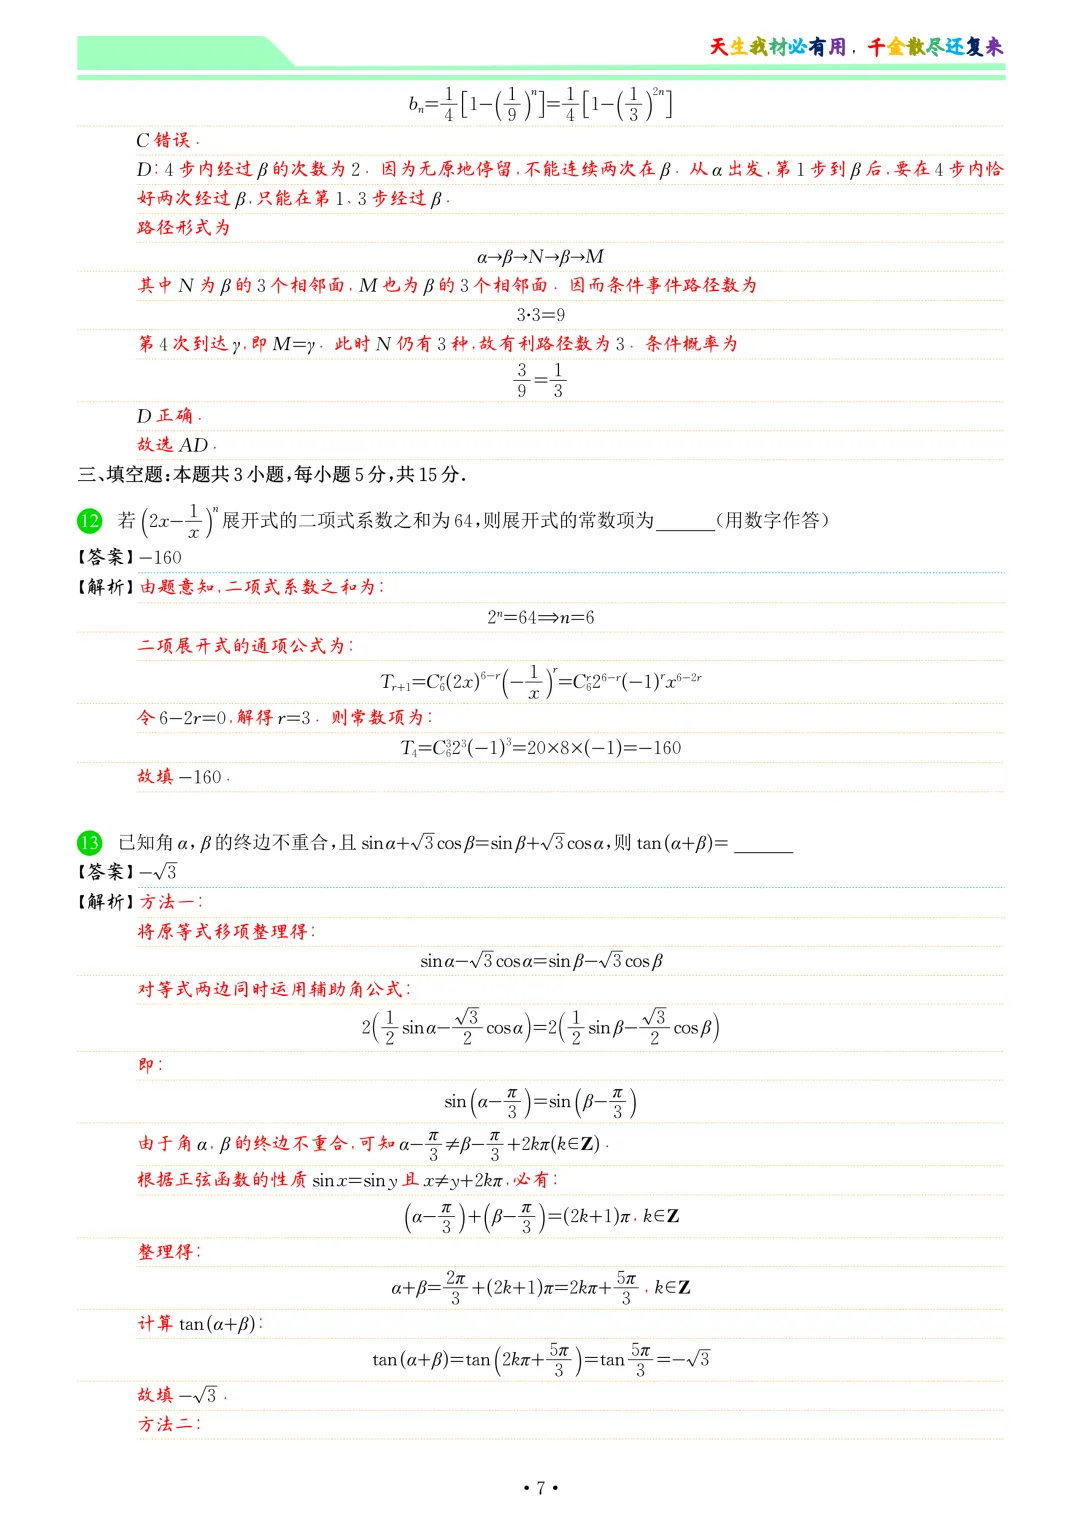 天生我材必有用，千金散尽还复来
bₙ=1/4[1−(1/9)ⁿ]=1/4[1−(1/3)²ⁿ]
C 错误．
D: 4 步内经过 β 的次数为 2．因为无原地停留,不能连续两次在 β．从 α 出发,第 1 步到 β 后,要在 4 步内恰
好两次经过 β,只能在第 1、3 步经过 β．
路径形式为
α→β→N→β→M
其中 N 为 β 的 3 个相邻面, M 也为 β 的 3 个相邻面．因而条件事件路径数为
3·3=9
第 4 次到达 γ,即 M=γ．此时 N 仍有 3 种,故有利路径数为 3．条件概率为
3/9=1/3
D 正确．
故选 AD．
三、填空题:本题共 3 小题,每小题 5 分,共 15 分.
12 若 (2x−1/x)ⁿ 展开式的二项式系数之和为 64,则展开式的常数项为______(用数字作答)
【答案】−160
【解析】由题意知,二项式系数之和为:
2ⁿ=64⟹n=6
二项展开式的通项公式为:
Tᵣ₊₁=C₆ʳ(2x)⁶⁻ʳ(−1/x)ʳ=C₆ʳ2⁶⁻ʳ(−1)ʳx⁶⁻²ʳ
令 6−2r=0,解得 r=3．则常数项为:
T₄=C₆³2³(−1)³=20×8×(−1)=−160
故填 −160．
13 已知角 α, β 的终边不重合,且 sinα+√3cosβ=sinβ+√3cosα,则 tan(α+β)= ______
【答案】−√3
【解析】方法一:
将原等式移项整理得:
sinα−√3cosα=sinβ−√3cosβ
对等式两边同时运用辅助角公式:
2(1/2 sinα−√3/2 cosα)=2(1/2 sinβ−√3/2 cosβ)
即:
sin(α−π/3)=sin(β−π/3)
由于角 α, β 的终边不重合,可知 α−π/3≠β−π/3+2kπ(k∈Z)．
根据正弦函数的性质 sinx=siny 且 x≠y+2kπ,必有:
(α−π/3)+(β−π/3)=(2k+1)π, k∈Z
整理得:
α+β=2π/3+(2k+1)π=2kπ+5π/3, k∈Z
计算 tan(α+β):
tan(α+β)=tan(2kπ+5π/3)=tan5π/3=−√3
故填 −√3．
方法二:
• 7 •